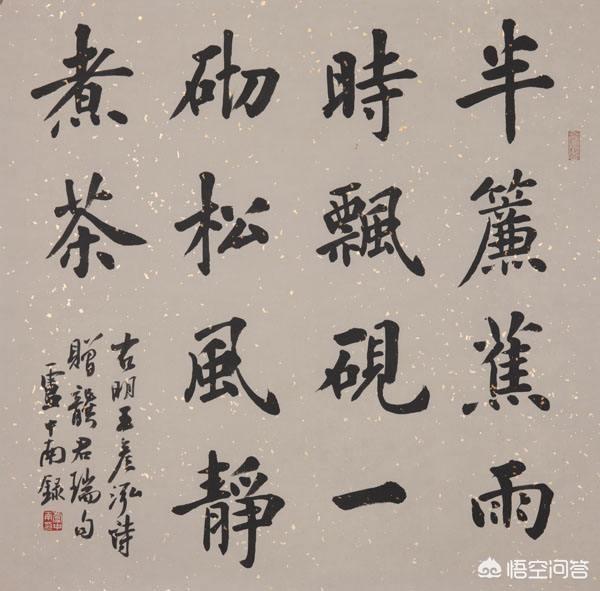 半簾蕉雨
時飄硯一
砌松風靜
煮茶
右明王彦泓詩
贈龔君瑞句
盧中南錄
悟空问答